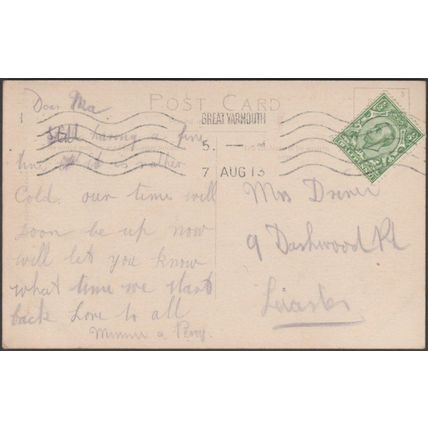 POST CARD
GREAT YARMOUTH
5. —
7 AUG 13
Dear Ma
Still having a fine
time it is rather
Cold. our time will
soon be up now
will let you know
what time we start
back Love to all
Minnie & Percy
Mrs Driver
9 Dashwood Rd
Leicester